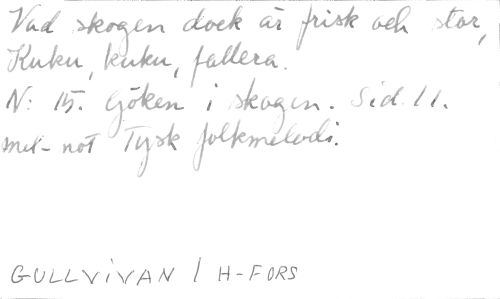 Vad skogen dock är frisk och stor,
Kuku, kuku, fallera.
N: 15. Göken i skogen. Sid. 11.
mel-not Tysk folkmelodi.
GULLVIVAN / H-FORS